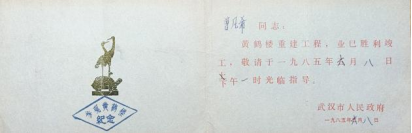 同志：
黄鹤楼重建工程，业已胜利竣
工，敬请于一九八五年六月八日
午一时光临指导。
武汉市人民政府
一九八五年六月八日
纪念